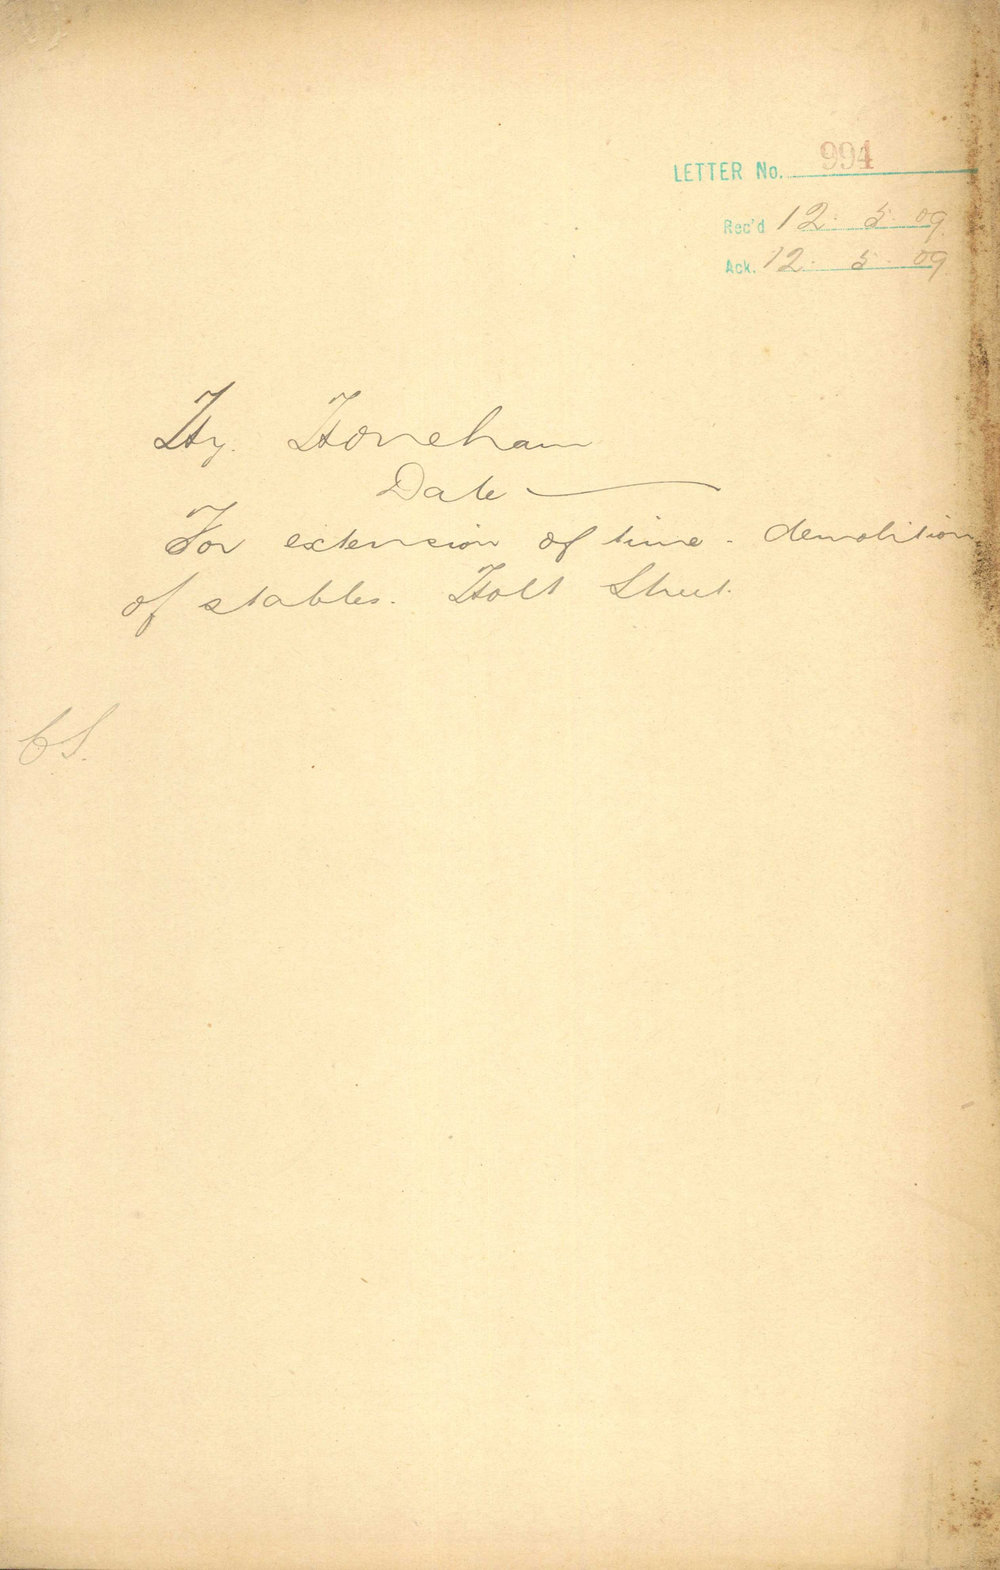 LETTER No. 994
Rec'd 12. 5. 09
Ack. 12. 5. 09
Hy. Honeham
Date
For extension of time - demolition
of stables. Holt Street.
CS.